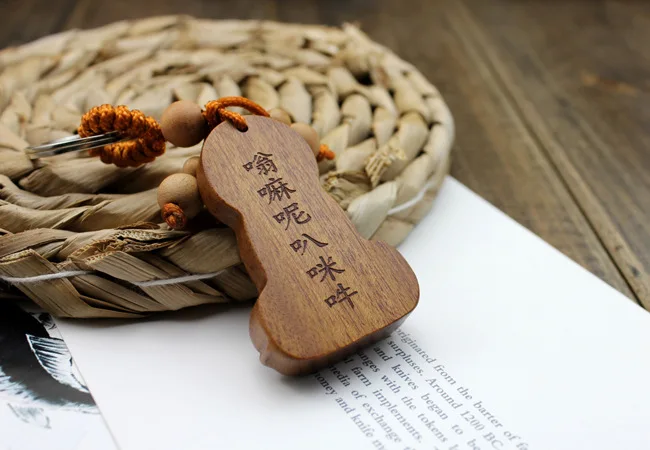 嗡嘛呢叭咪吽
from the barter of
surpluses. Around 1200 BC.
and knives began to
with the tokens
farm implements.
of exchange
and knife